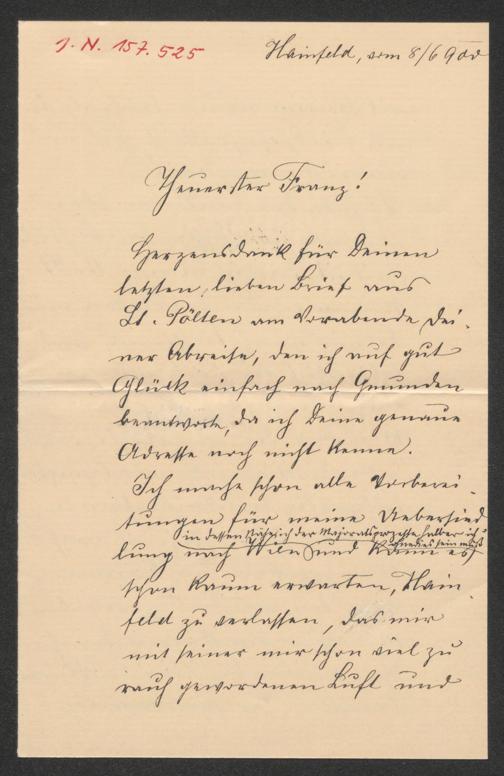 J. N. 157.525
Hainfeld, vom 8/6 900
Theuerster Franz!
Herzensdank für Deinen
letzten, lieben Brief aus
St. Pölten am Vorabende Dei-
ner Abreise, den ich auf gut
Glück einfach nach Gmunden
beantworte, da ich Deine genaue
Adresse noch nicht kenne.
Ich mache schon alle Vorberei-
tungen für meine Uebersied
in dessen Nähe ich der Majoratsprozesse halber ich
sein muß
lung nach Wien und kann es
schon kaum erwarten, Hain-
feld zu verlassen, das mir
mit seiner mir schon viel zu
rauh gewordenen Luft und